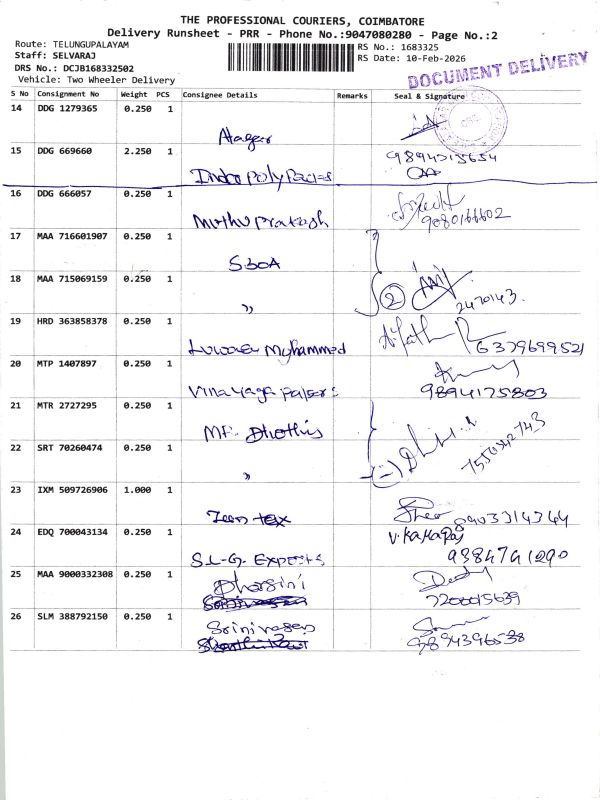 THE PROFESSIONAL COURIERS, COIMBATORE
Delivery Runsheet - PRR - Phone No.:9047080280 - Page No.:2
Route: TELUNGUPALAYAM
Staff: SELVARAJ
DRS No.: DCJB168332502
Vehicle: Two Wheeler Delivery
RS No.: 1683325
RS Date: 10-Feb-2026
DOCUMENT DELIVERY
S No Consignment No Weight PCS Consignee Details Remarks Seal & Signature
14 DDG 1279365 0.250 1
15 DDG 669660 2.250 1
16 DDG 666057 0.250 1
Muthu Prakash
9080166602
17 MAA 716601907 0.250 1
SBOA
18 MAA 715069159 0.250 1
"
2
2470143.
19 HRD 363858378 0.250 1
Myhammed
6379699521
20 MTP 1407897 0.250 1
Vinayaga Papers
9894175803
21 MTR 2727295 0.250 1
Dhothis
22 SRT 70260474 0.250 1
"
23 IXM 509726906 1.000 1
tex
8903314344
24 EDQ 700043134 0.250 1
S.L-G. Exports
9384741290
25 MAA 9000332308 0.250 1
Dharsini
7200015639
26 SLM 388792150 0.250 1
Srinivasan
9894396538